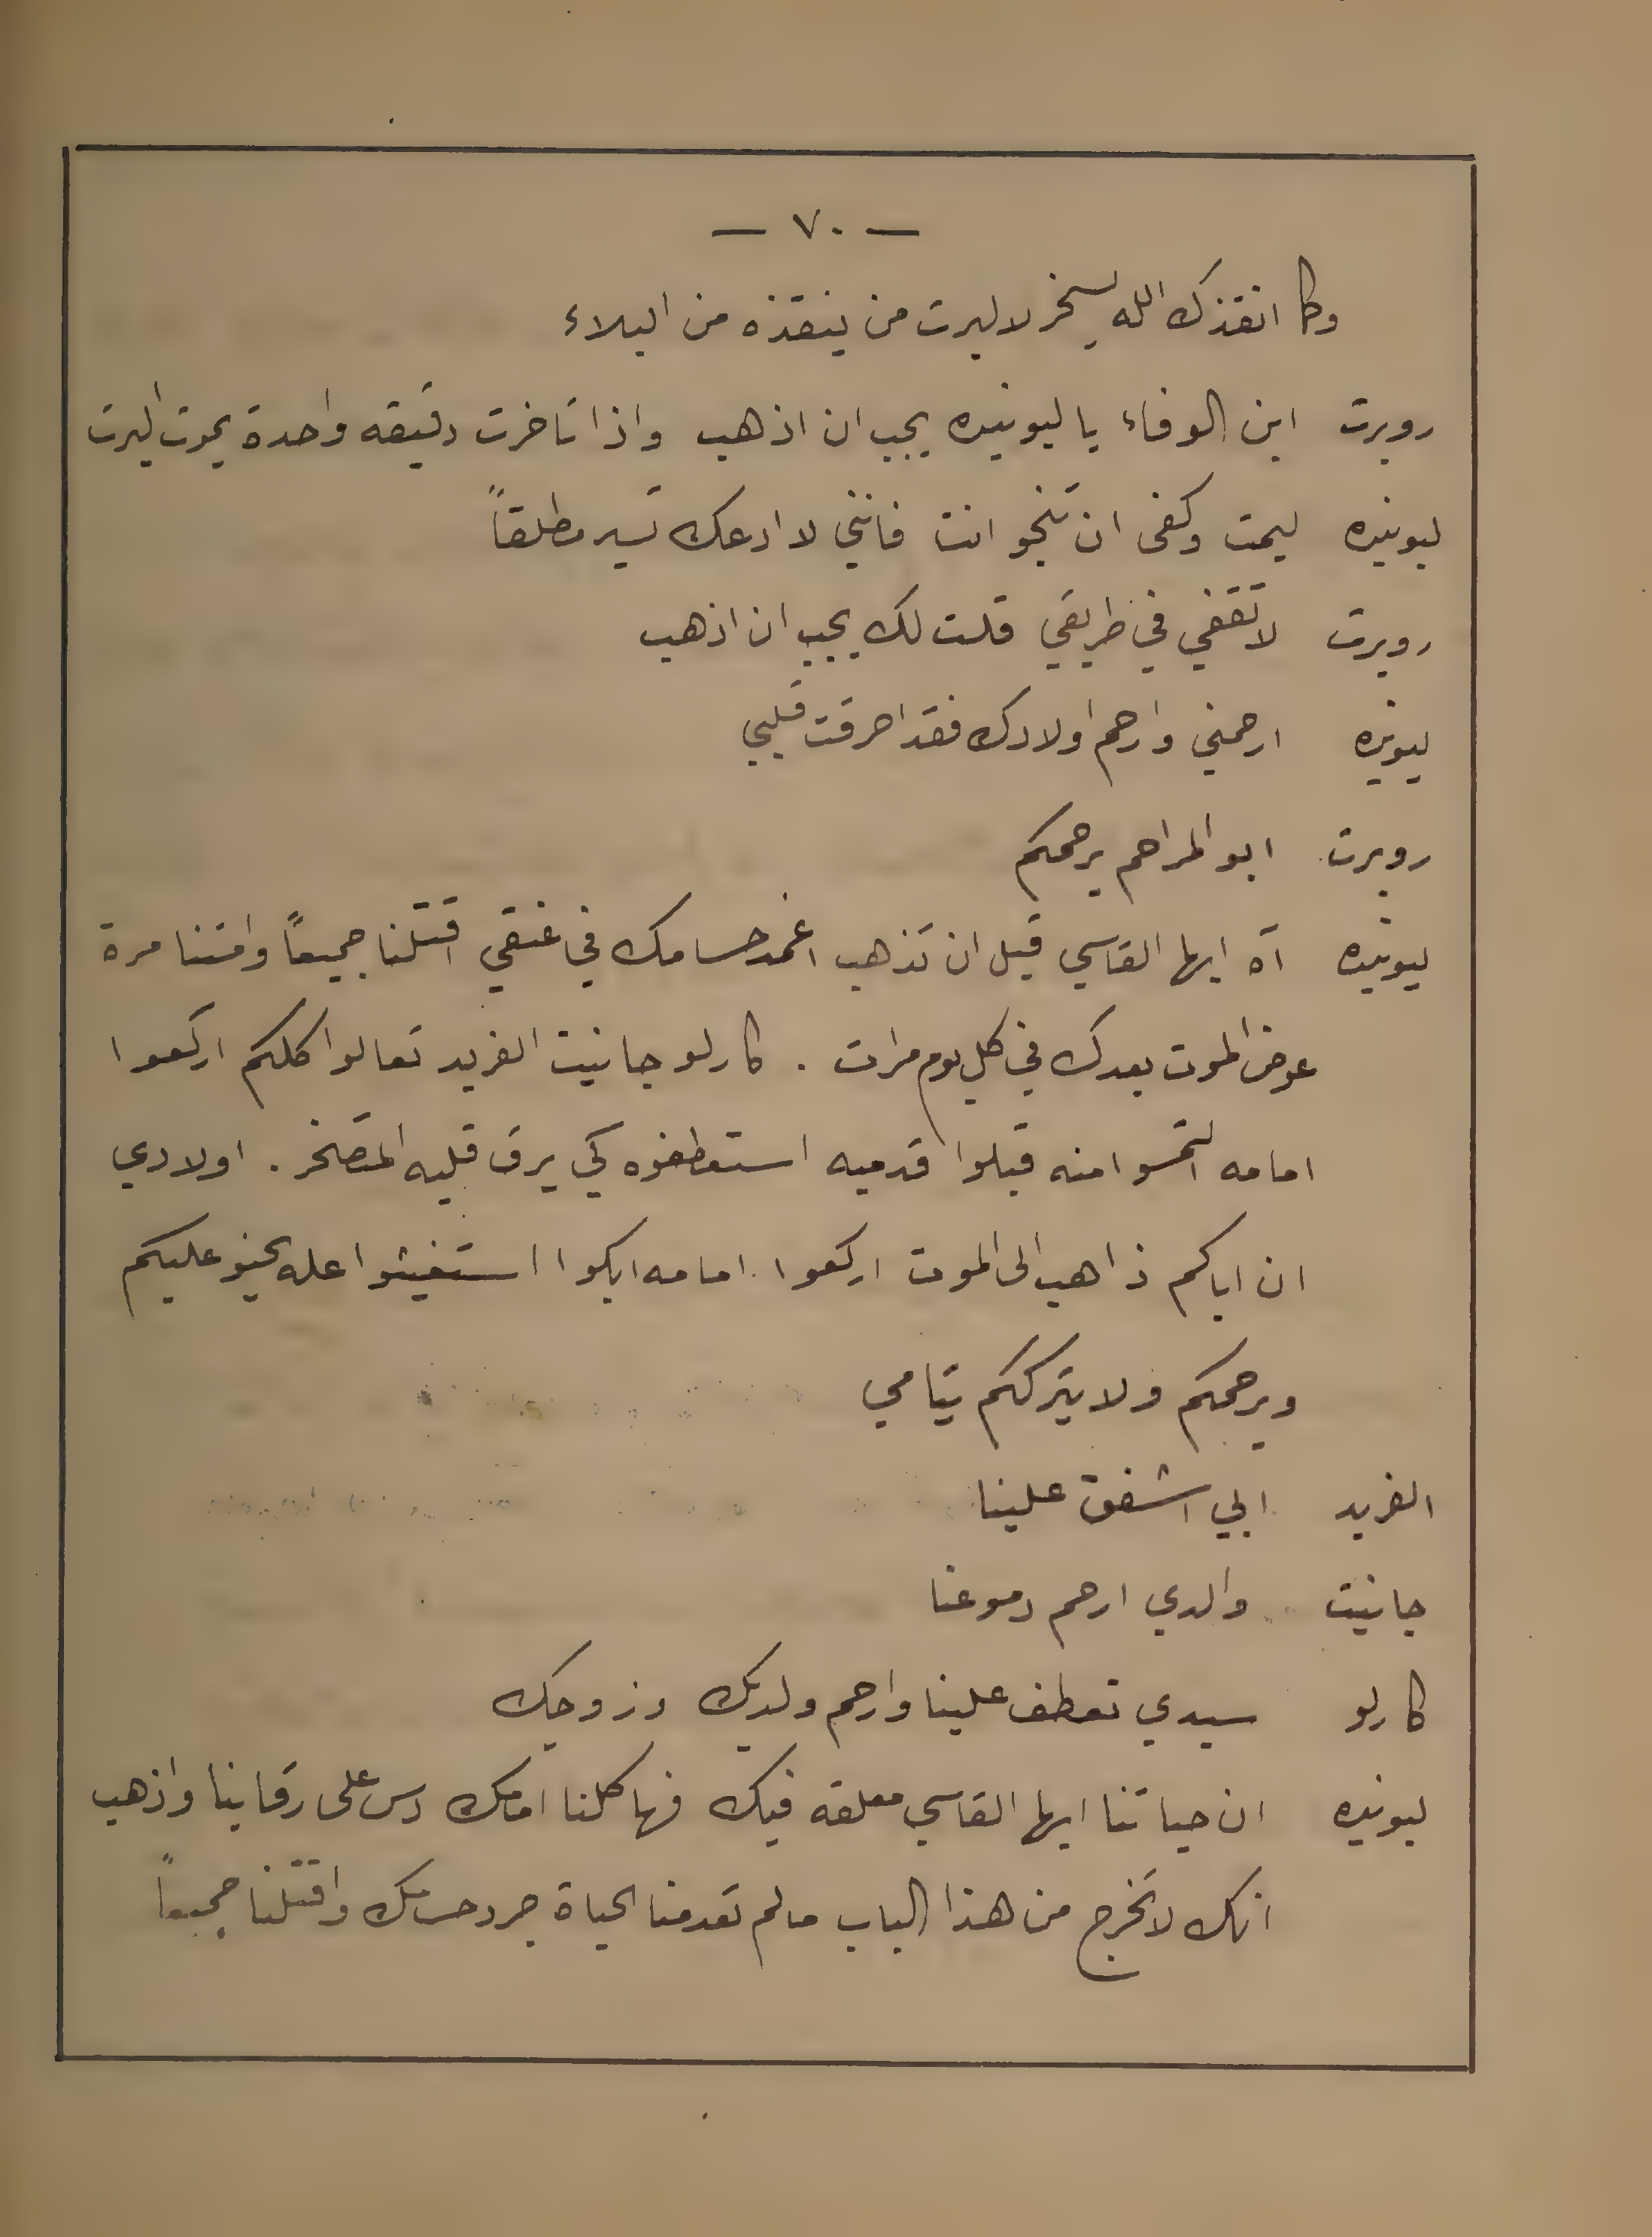 — ٧٠ —
وكما انقذك الله يسخر لالبرت من ينقذه من البلاء
روبرت اين الوفاء يا ليونيده يجب ان اذهب واذا تاخرت دقيقه واحدة يموت البرت
ليونيده ليمت وكفى ان تنجو انت فانني لا ادعك تسير مطلقاً
روبرت لا تقفي في طريقي قلت لك يجب ان اذهب
ليونيده ارحمني وارحم اولادك فقد احرقت قلبي
روبرت ابو المراحم يرحمكم
ليونيده آه ايها القاسي قبل ان تذهب اغمد حسامك في عنقي اقتلنا جميعاً وامتنا مرة
عوض الموت بعدك في كل يوم مرات . كارلو جانيت الفريد تعالوا كلكم اركعوا
امامه التمسوا منه قبلوا قدميه استعطفوه كي يرق قلبه المتصخر . اولادي
ان اباكم ذاهب الى الموت اركعوا امامه ابكوا استغيثوا عله يحنو عليكم
ويرحمكم ولا يترككم يتامى
الفريد ابي اشفق علينا
جانيت والدي ارحم دموعنا
كارلو سيدي تعطف علينا وارحم ولديك وزوجك
ليونيده ان حياتنا ايها القاسي معلقه فيك فها كلنا امامك دس على رقابنا واذهب
انك لا تخرج من هذا الباب مالم تعدمنا الحياة جرد حسامك واقتلنا جميعاً